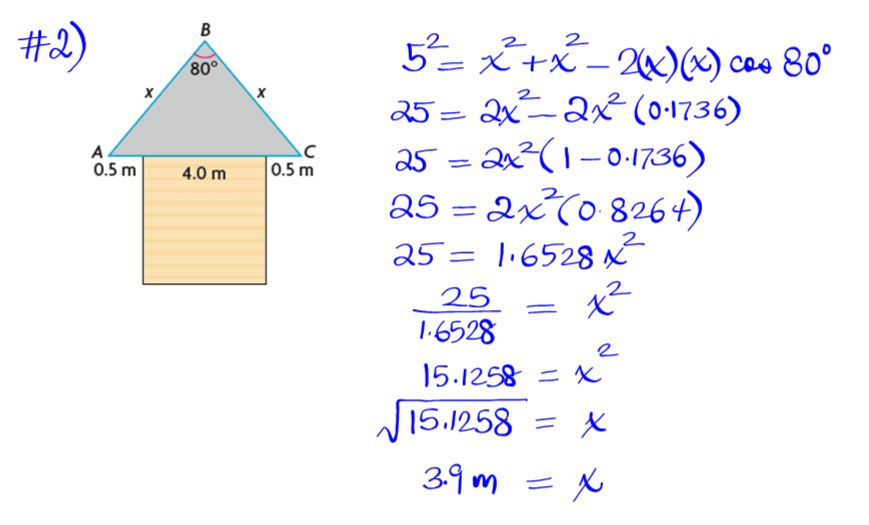 #2)
B
80°
x x
A C
0.5 m 4.0 m 0.5 m
5² = x² + x² - 2(x)(x) cos 80°
25 = 2x² - 2x² (0.1736)
25 = 2x² (1 - 0.1736)
25 = 2x² (0.8264)
25 = 1.6528 x²
25/1.6528 = x²
15.1258 = x²
√15.1258 = x
3.9 m = x